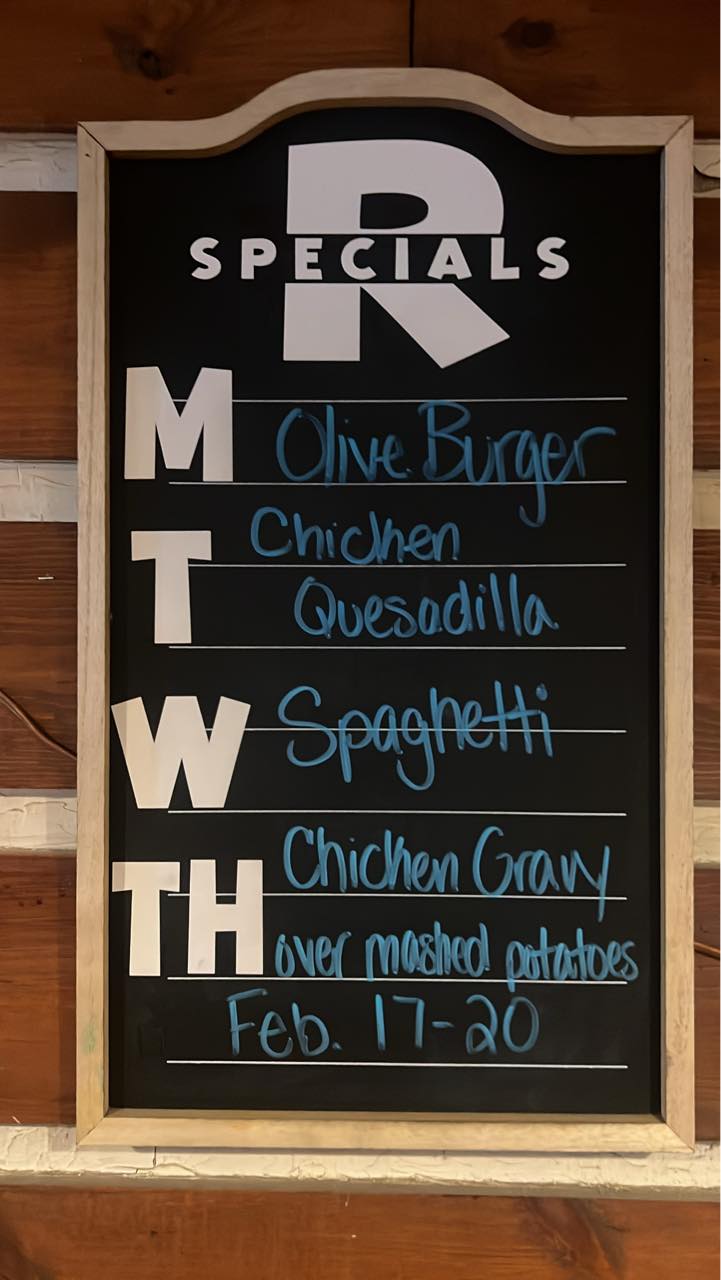 R
SPECIALS
M Olive Burger
T Chicken
Quesadilla
W Spaghetti
TH Chicken Gravy
over mashed potatoes
Feb. 17-20